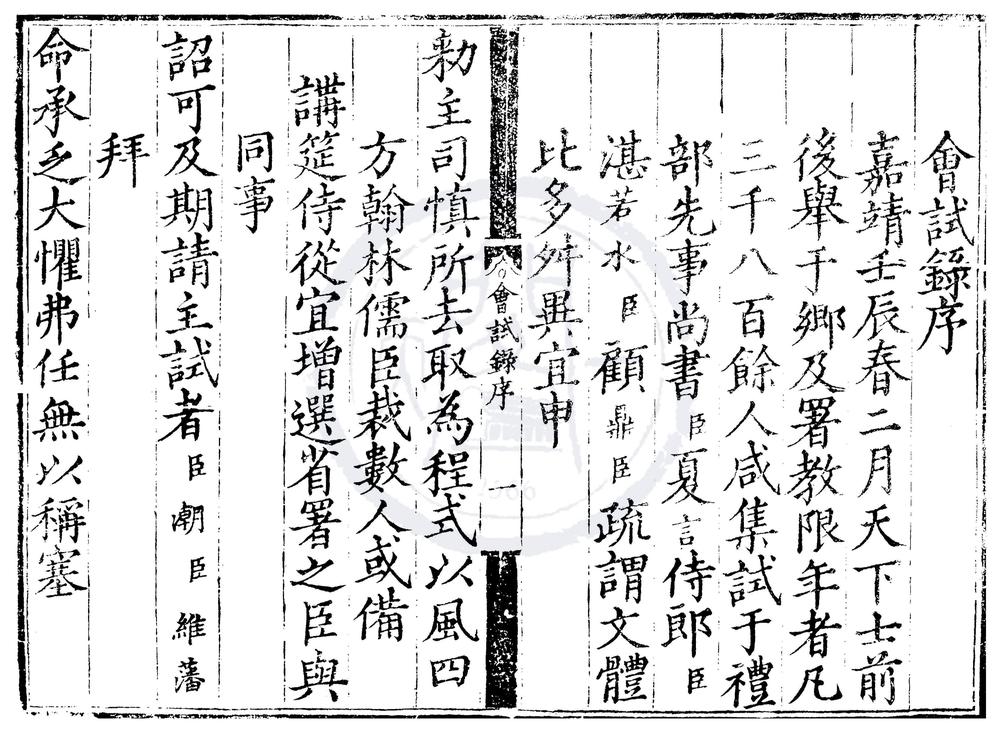 會試錄序
嘉靖壬辰春二月天下士前
後舉于鄉及署教限年者凡
三千八百餘人咸集試于禮
部先事尚書臣夏言侍郎臣
湛若水臣顧鼎臣疏謂文體
比多舛異宜申
會試錄序 一
勑主司慎所去取為程式以風四
方翰林儒臣裁數人或備
講筵侍從宜增選省署之臣與
同事
詔可及期請主試者臣潮臣維藩
拜
命承乏大懼弗任無以稱塞